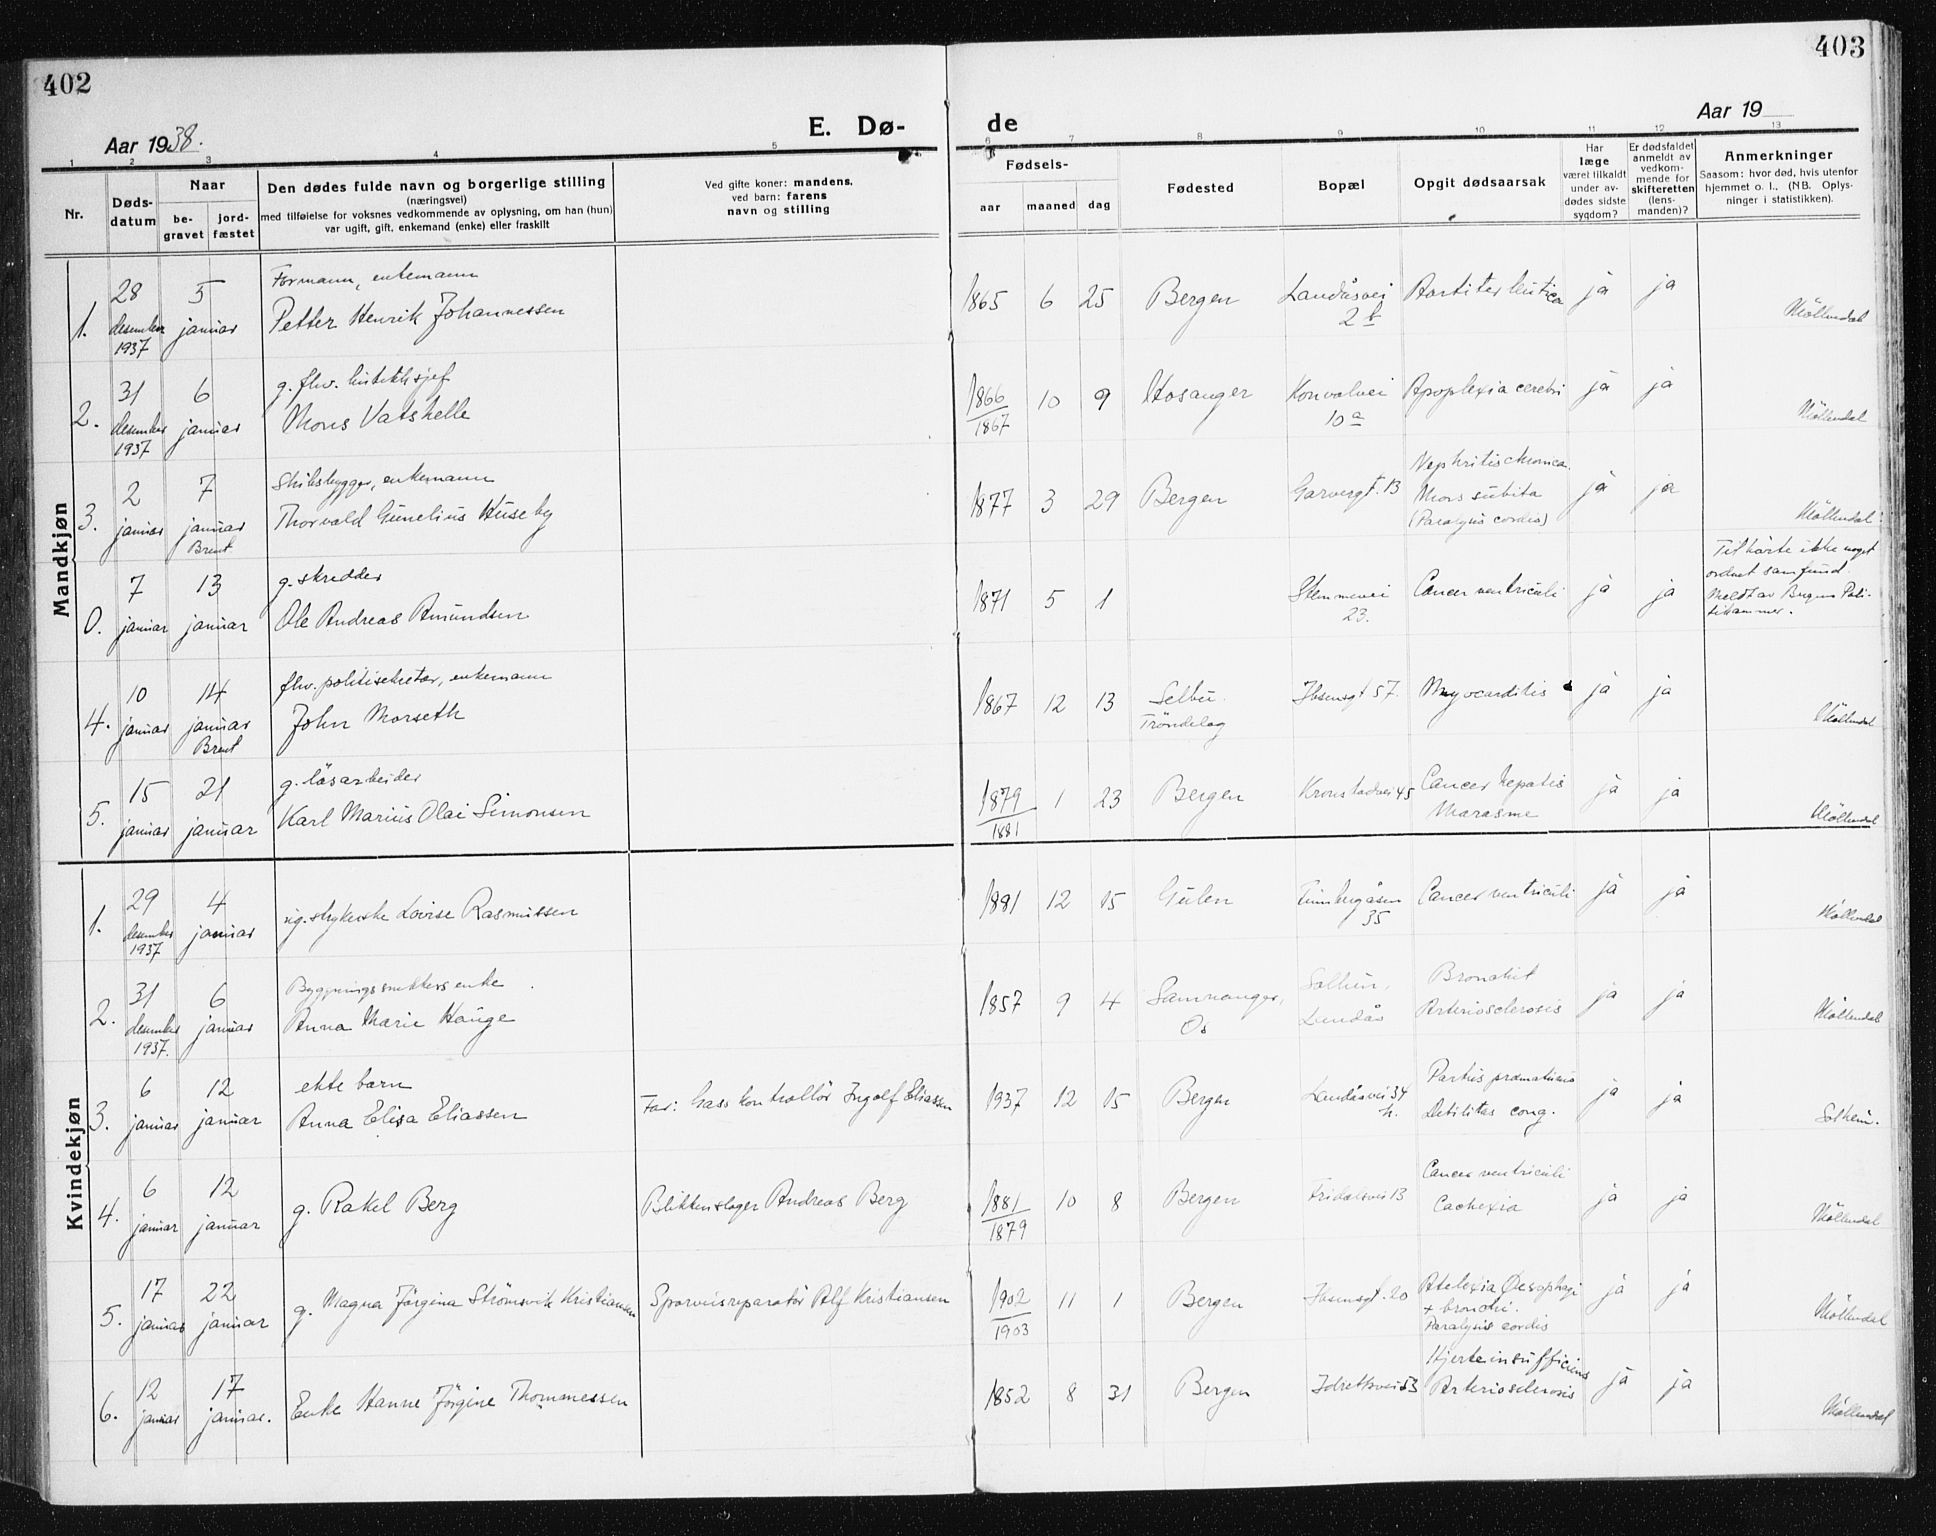 402
403
Aar 1938.
E. Dø-
de
Aar 19
1 2 3 4 5 6 7 8 9 10 11 12 13
Nr.
Døds-
datum
Naar
be-
gravet
jord-
fæstet
Den dødes fulde navn og borgerlige stilling
(næringsvei)
med tilføielse for voksnes vedkommende av oplysning, om han (hun)
var ugift, gift, enkemand (enke) eller fraskilt
Ved gifte koner: mandens,
ved barn: farens
navn og stilling
Fødsels-
aar
maaned
dag
Fødested
Bopæl
Opgit dødsaarsak
Har
læge
været tilkaldt
under av-
dødes sidste
sygdom?
Er dødsfaldet
anmeldt av
vedkom-
mende for
skifteretten
(lens-
manden)?
Anmerkninger
Saasom: hvor død, hvis utenfor
hjemmet o. l., (NB. Oplys-
ninger i statistikken).
Mandkjøn
1. 28 desember 1937
5 januar
Formann, enkemann
Petter Henrik Johannessen
1865 6 25 Bergen
Landåsvei
2 b
ja ja
Möllendal
2. 31 desember 1937
6 januar
g. fhv.
Mons Vatshelle
1866
1867
10 9 Hosanger
Konvalvei
10 a
Apoplexia cerebri
ja ja
Möllendal
3. 2 januar
7 januar
Brent
Skibsbygger, enkemann
Thorvald Gunelius Huseby
1877 3 29 Bergen
Garvergt. 13
Nephritis chronica.
Mors subita
(Paralysis cordis)
ja ja
Möllendal
0. 7 januar
13 januar
g. skredder
Ole Andreas Amundsen
1871 5 1
Stemmevei
23.
Cancer ventriculi
ja ja
Tilhörte ikke noget
ordnet samfund.
Meldt av Bergens Poli-
tikammer.
4. 10 januar
14 januar
Brent
fhv. politisekretær, enkemann
John Morseth
1867 12 13
Selbu.
Tröndelag
Ibsensgt 57.
Myocarditis
ja ja
Möllendal
5. 15 januar
21 januar
g. løsarbeider
Karl Marius Olai Simonsen
1879
1881
1 23 Bergen
Kronstadvei 45
Cancer hepatis
Marasme
ja ja
Möllendal
Kvindekjøn
1. 29 desember 1937
4 januar
ug. strykerske Lovise Rasmussen
1881 12 15 Gulen
35
Cancer ventriculi
ja ja
Möllendal
2. 31 desember 1937.
6 januar
Bygningssnekkers enke
Anna Marie Hauge
1857 9 4
Samnanger,
Os
Solheim,
Landås
Bronchit
Arteriosclerosis
ja ja
Möllendal
3. 6 januar
12 januar
ekte barn
Anna Elisa Eliassen
Far: Gasskontrollör Ingolf Eliassen
1937 12 15 Bergen
Landåsvei 34
h.
Partus præmaturus
Debilitas cong.
ja ja
Solheim.
4. 6 januar
12 januar
g. Rakel Berg
Blikkenslager Andreas Berg
1881
1879
10 8 Bergen
Fridalsvei 13
Cancer ventriculi
Cachexia
ja ja
Möllendal
5. 17 januar
22 januar
g. Magna Jörgina Strömsvik Kristiansen
Sporveisreparatör Alf Kristiansen
1902
1903
11 1 Bergen
Ibsensgt. 20
Oesophagi
+ bronchi.
Paralysis cordis
ja ja
Möllendal
6. 12 januar
17 januar.
Enke Hanne Jörgine Thommessen
1852 8 31 Bergen
Idrettsvei 53
Hjerteinsufficiens
Arteriosclerosis
ja ja
Möllendal